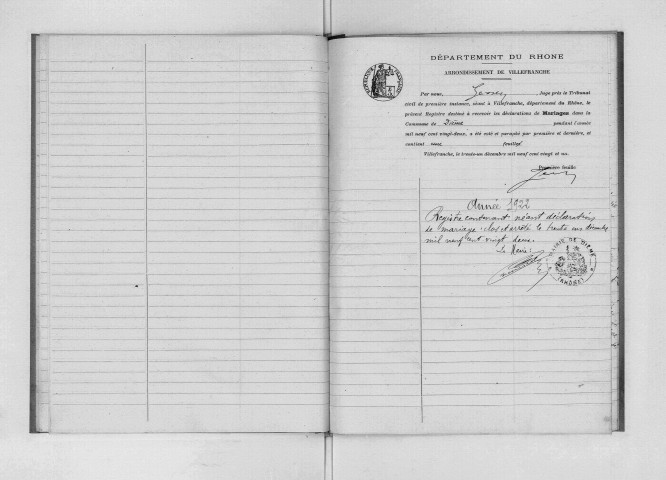 DÉPARTEMENT DU RHONE
ARRONDISSEMENT DE VILLEFRANCHE
Par nous, Juge près le Tribunal
civil de première instance, séant à Villefranche, département du Rhône, le
présent Registre destiné à recevoir les déclarations de Mariages dans la
Commune de Dième pendant l'année
mil neuf cent vingt-deux, a été coté et paraphé par première et dernière, et
contient feuilles
Villefranche, le trente-un décembre mil neuf cent vingt et un.
Première feuille
Année 1922
Registre contenant néant déclarations
de mariage, clos et arrêté le trente un décembre
mil neuf cent vingt deux.
Le Maire,
MAIRIE DE DIÈME
(RHÔNE)